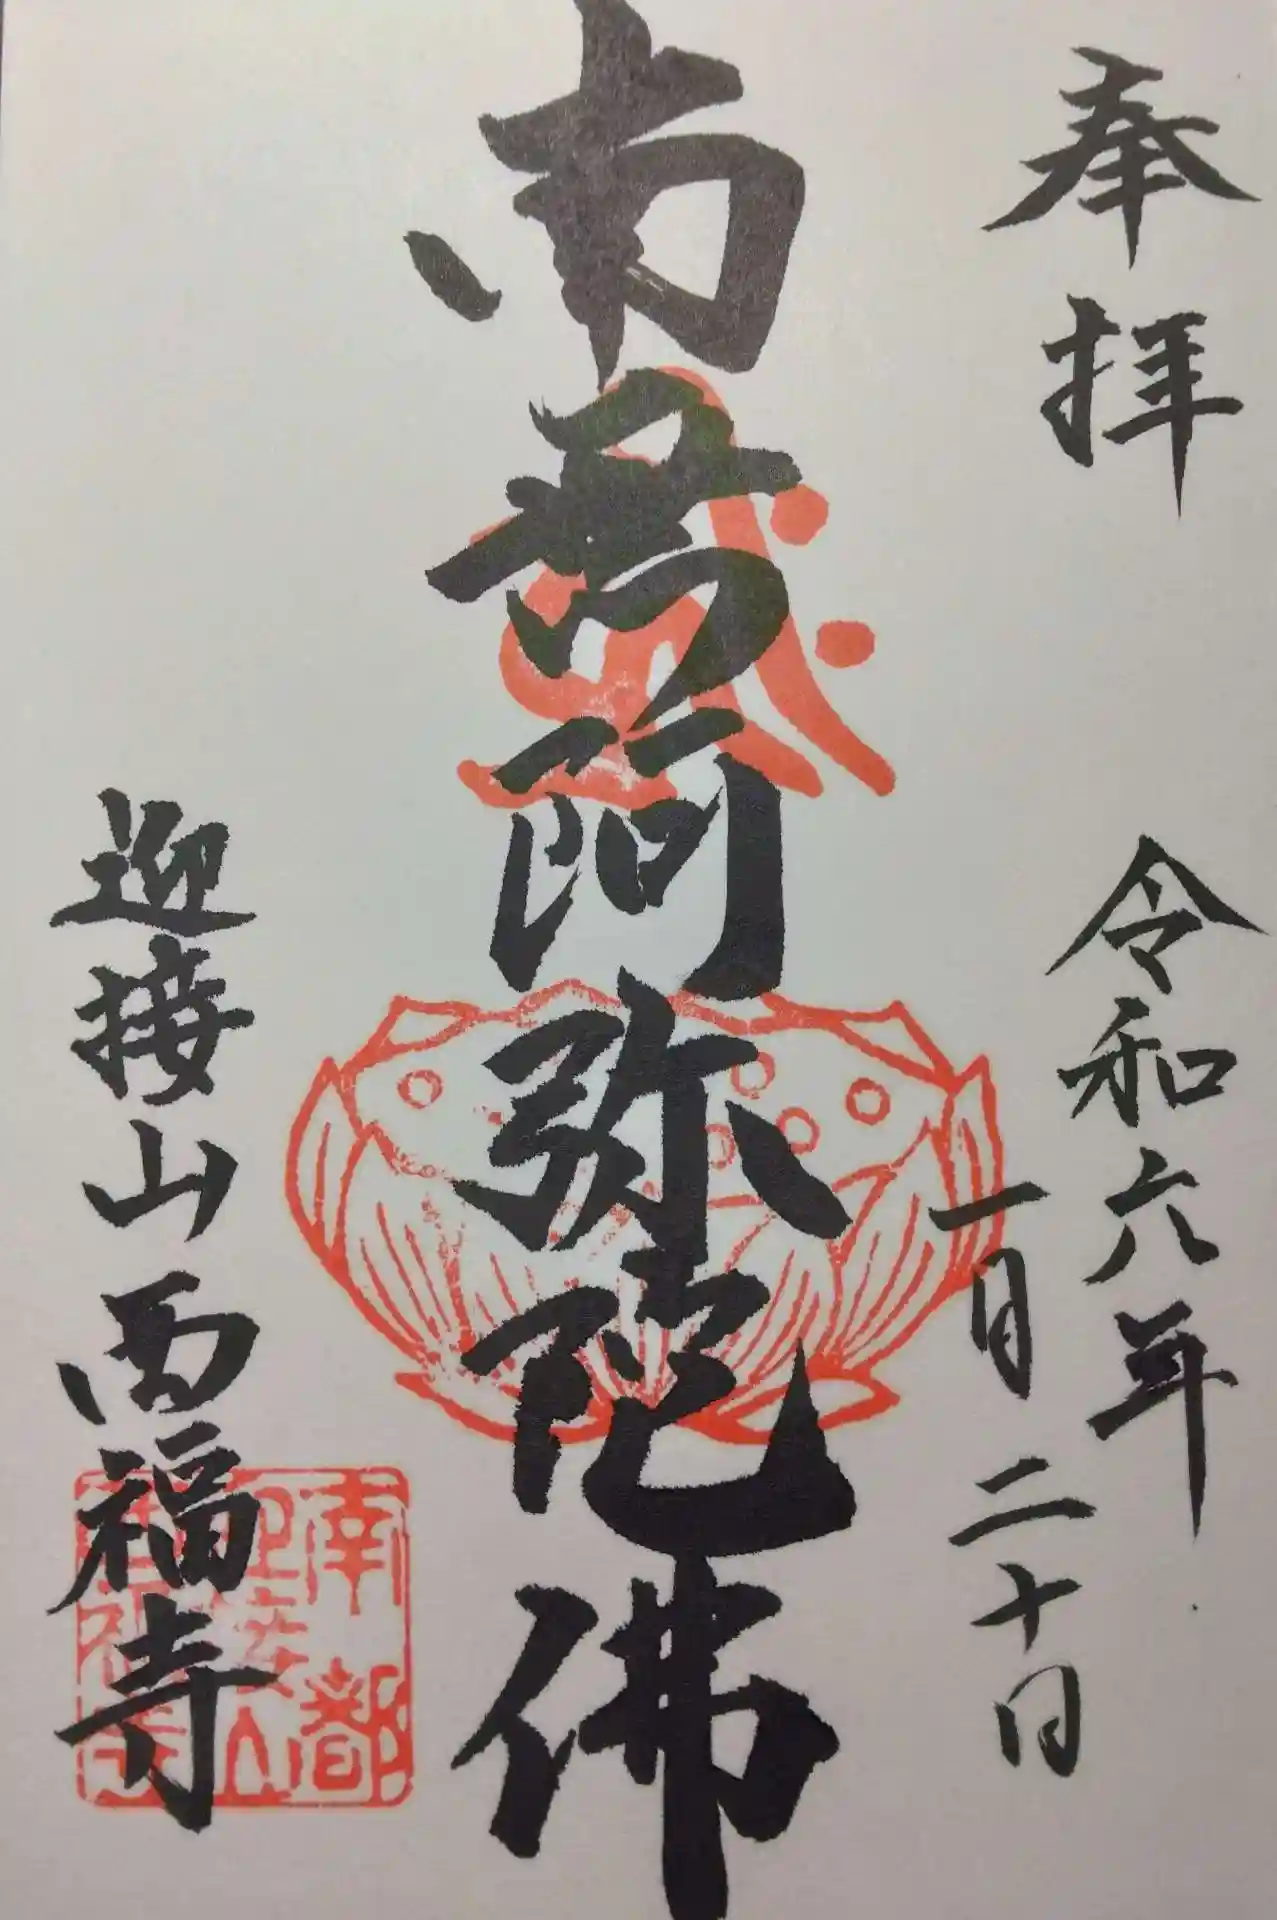 奉拝
令和六年
一月二十日
南無阿弥陀佛
迎接山西福寺
南都